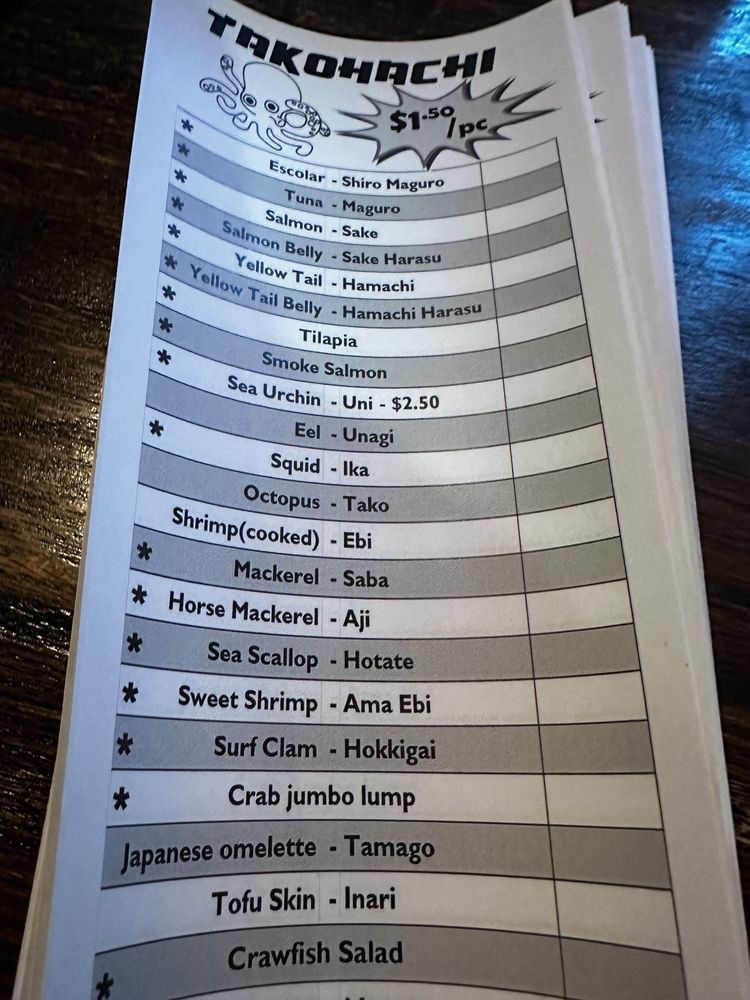 TAKOHACHI
$1.50/pc
* Escolar - Shiro Maguro
* Tuna - Maguro
* Salmon - Sake
* Salmon Belly - Sake Harasu
* Yellow Tail - Hamachi
* Yellow Tail Belly - Hamachi Harasu
* Tilapia
* Smoke Salmon
* Sea Urchin - Uni - $2.50
Eel - Unagi
* Squid - Ika
Octopus - Tako
Shrimp(cooked) - Ebi
* Mackerel - Saba
* Horse Mackerel - Aji
* Sea Scallop - Hotate
* Sweet Shrimp - Ama Ebi
* Surf Clam - Hokkigai
* Crab jumbo lump
Japanese omelette - Tamago
Tofu Skin - Inari
Crawfish Salad
*